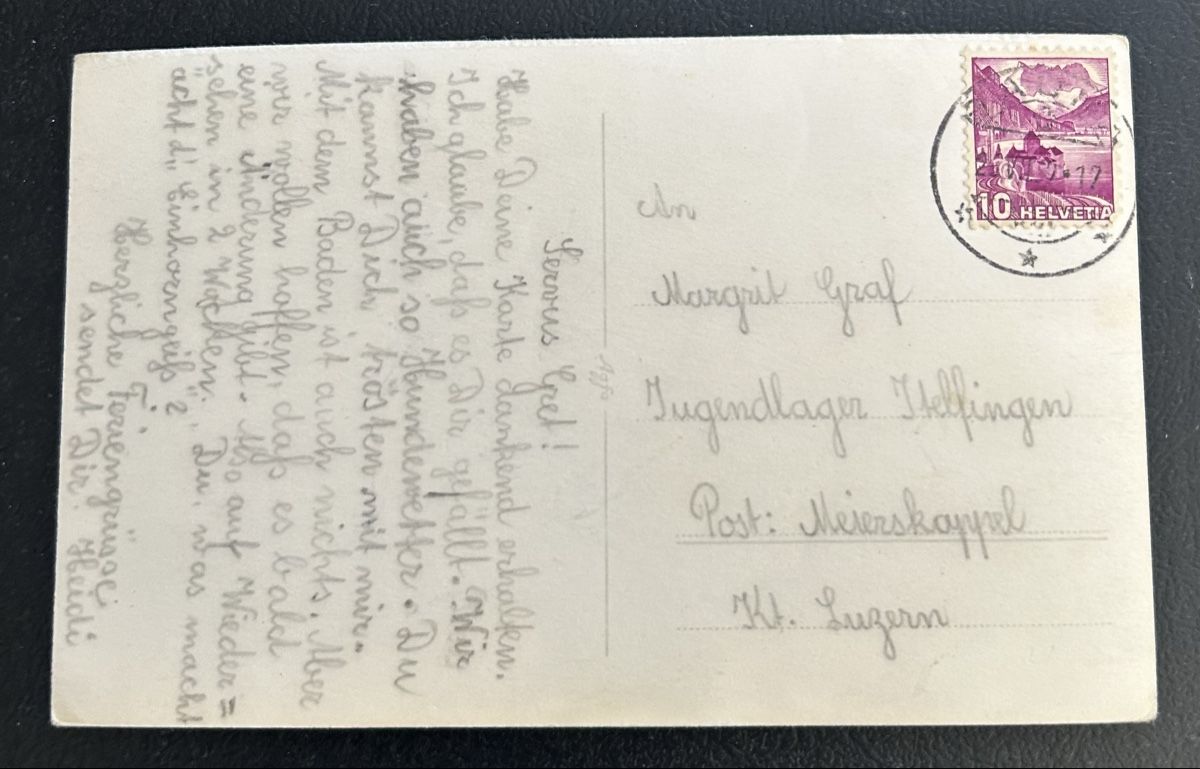 Servus Gret!
Habe Deine Karte dankend erhalten.
Ich glaube, daß es Dir gefällt. Wir
haben auch so Hundewetter. Du
kannst Dich trösten mit mir.
Mit dem Baden ist auch nichts. Aber
wir wollen hoffen, daß es bald
eine Änderung gibt. Also auf Wieder=
sehen in 2 Wochen. Du, was macht
ächt d'
Herzliche Feriengrüsse
sendet Dir Heidi
Agfa
An
Margrit Graf
Jugendlager Itelfingen
Post: Meierskappel
Kt. Luzern
10 HELVETIA